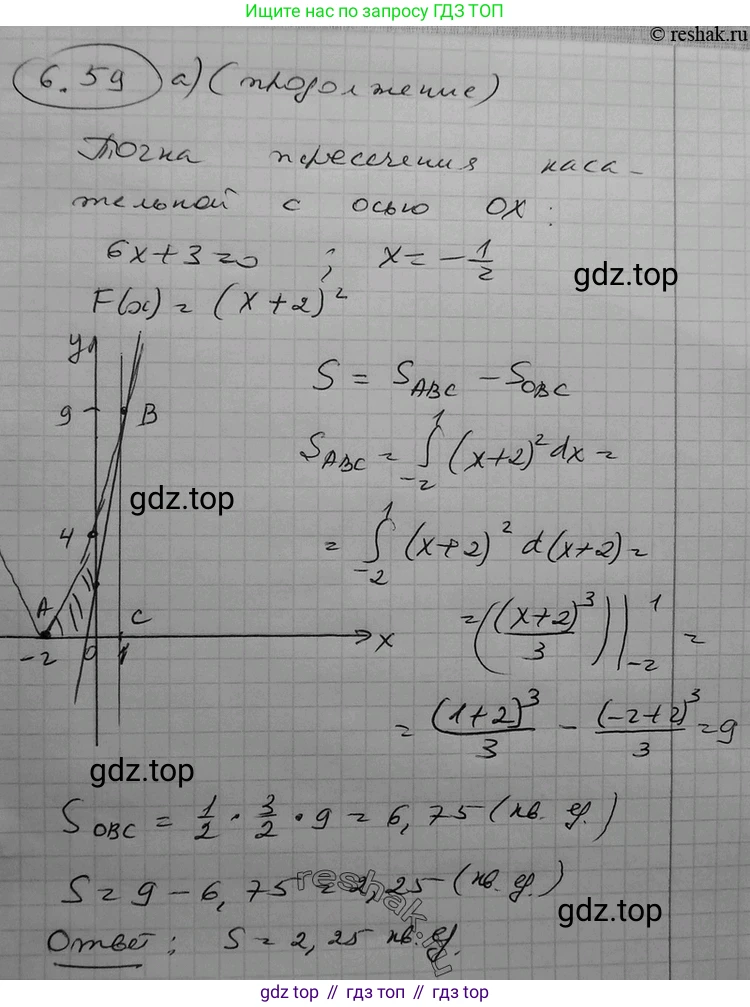 Ищите нас по запросу ГДЗ ТОП
© reshak.ru
6.59 а) (продолжение)
Точка пересечения каса-
тельной с осью OX:
6x+3=0 ; x = -1/2
gdz.top
F(x) = (x+2)²
y
S = S_ABC - S_OBC
9 B
S_ABC = ∫_{-2}^{1} (x+2)² dx =
gdz.top
4
= ∫_{-2}^{1} (x+2)² d(x+2) =
A C
= ((x+2)³/3) |_{-2}^{1} =
x
-2 0 1
= (1+2)³/3 - (-2+2)³/3 = 9
gdz.top
S_OBC = 1/2 · 3/2 · 9 = 6,75 (кв. ед.)
S = 9 - 6,75 = 2,25 (кв. ед.)
reshak.ru
gdz.top
Ответ: S = 2,25 кв. ед.
gdz.top // гдз.топ // gdz.top // гдз.топ